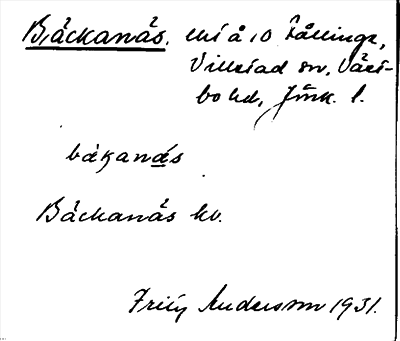 Bäckanäs. enl å 10 Fållinge,
Villstad sn, Väst-
bo hd, Jönk. l.
bäkanäs
Bäckanäs kv.
Fritz Andersson 1931.